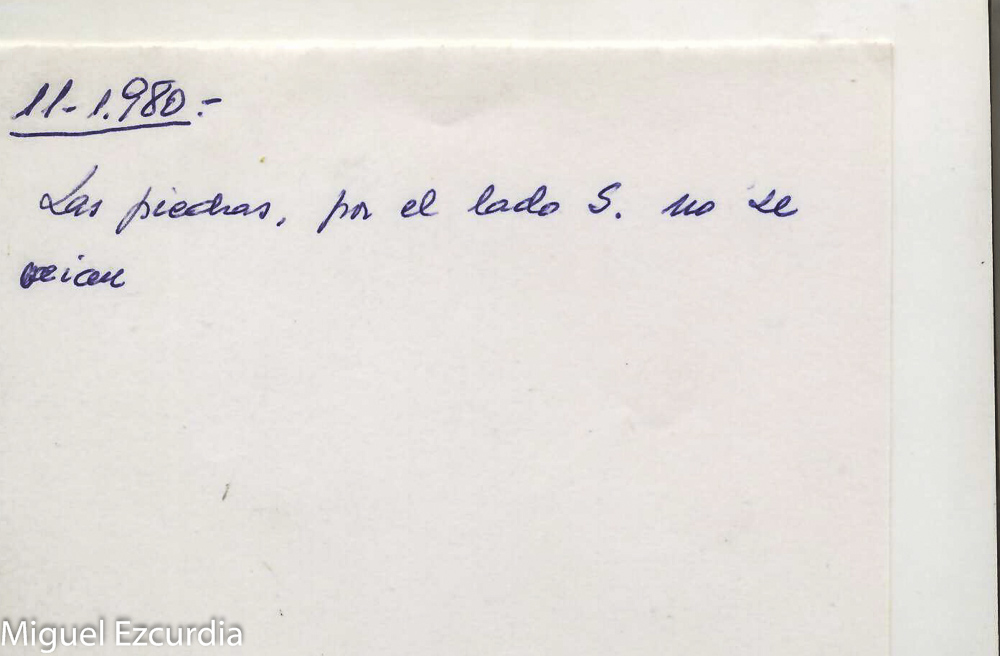 11-1.980.-
Las piedras, por el lado S. no se
veian
Miguel Ezcurdia